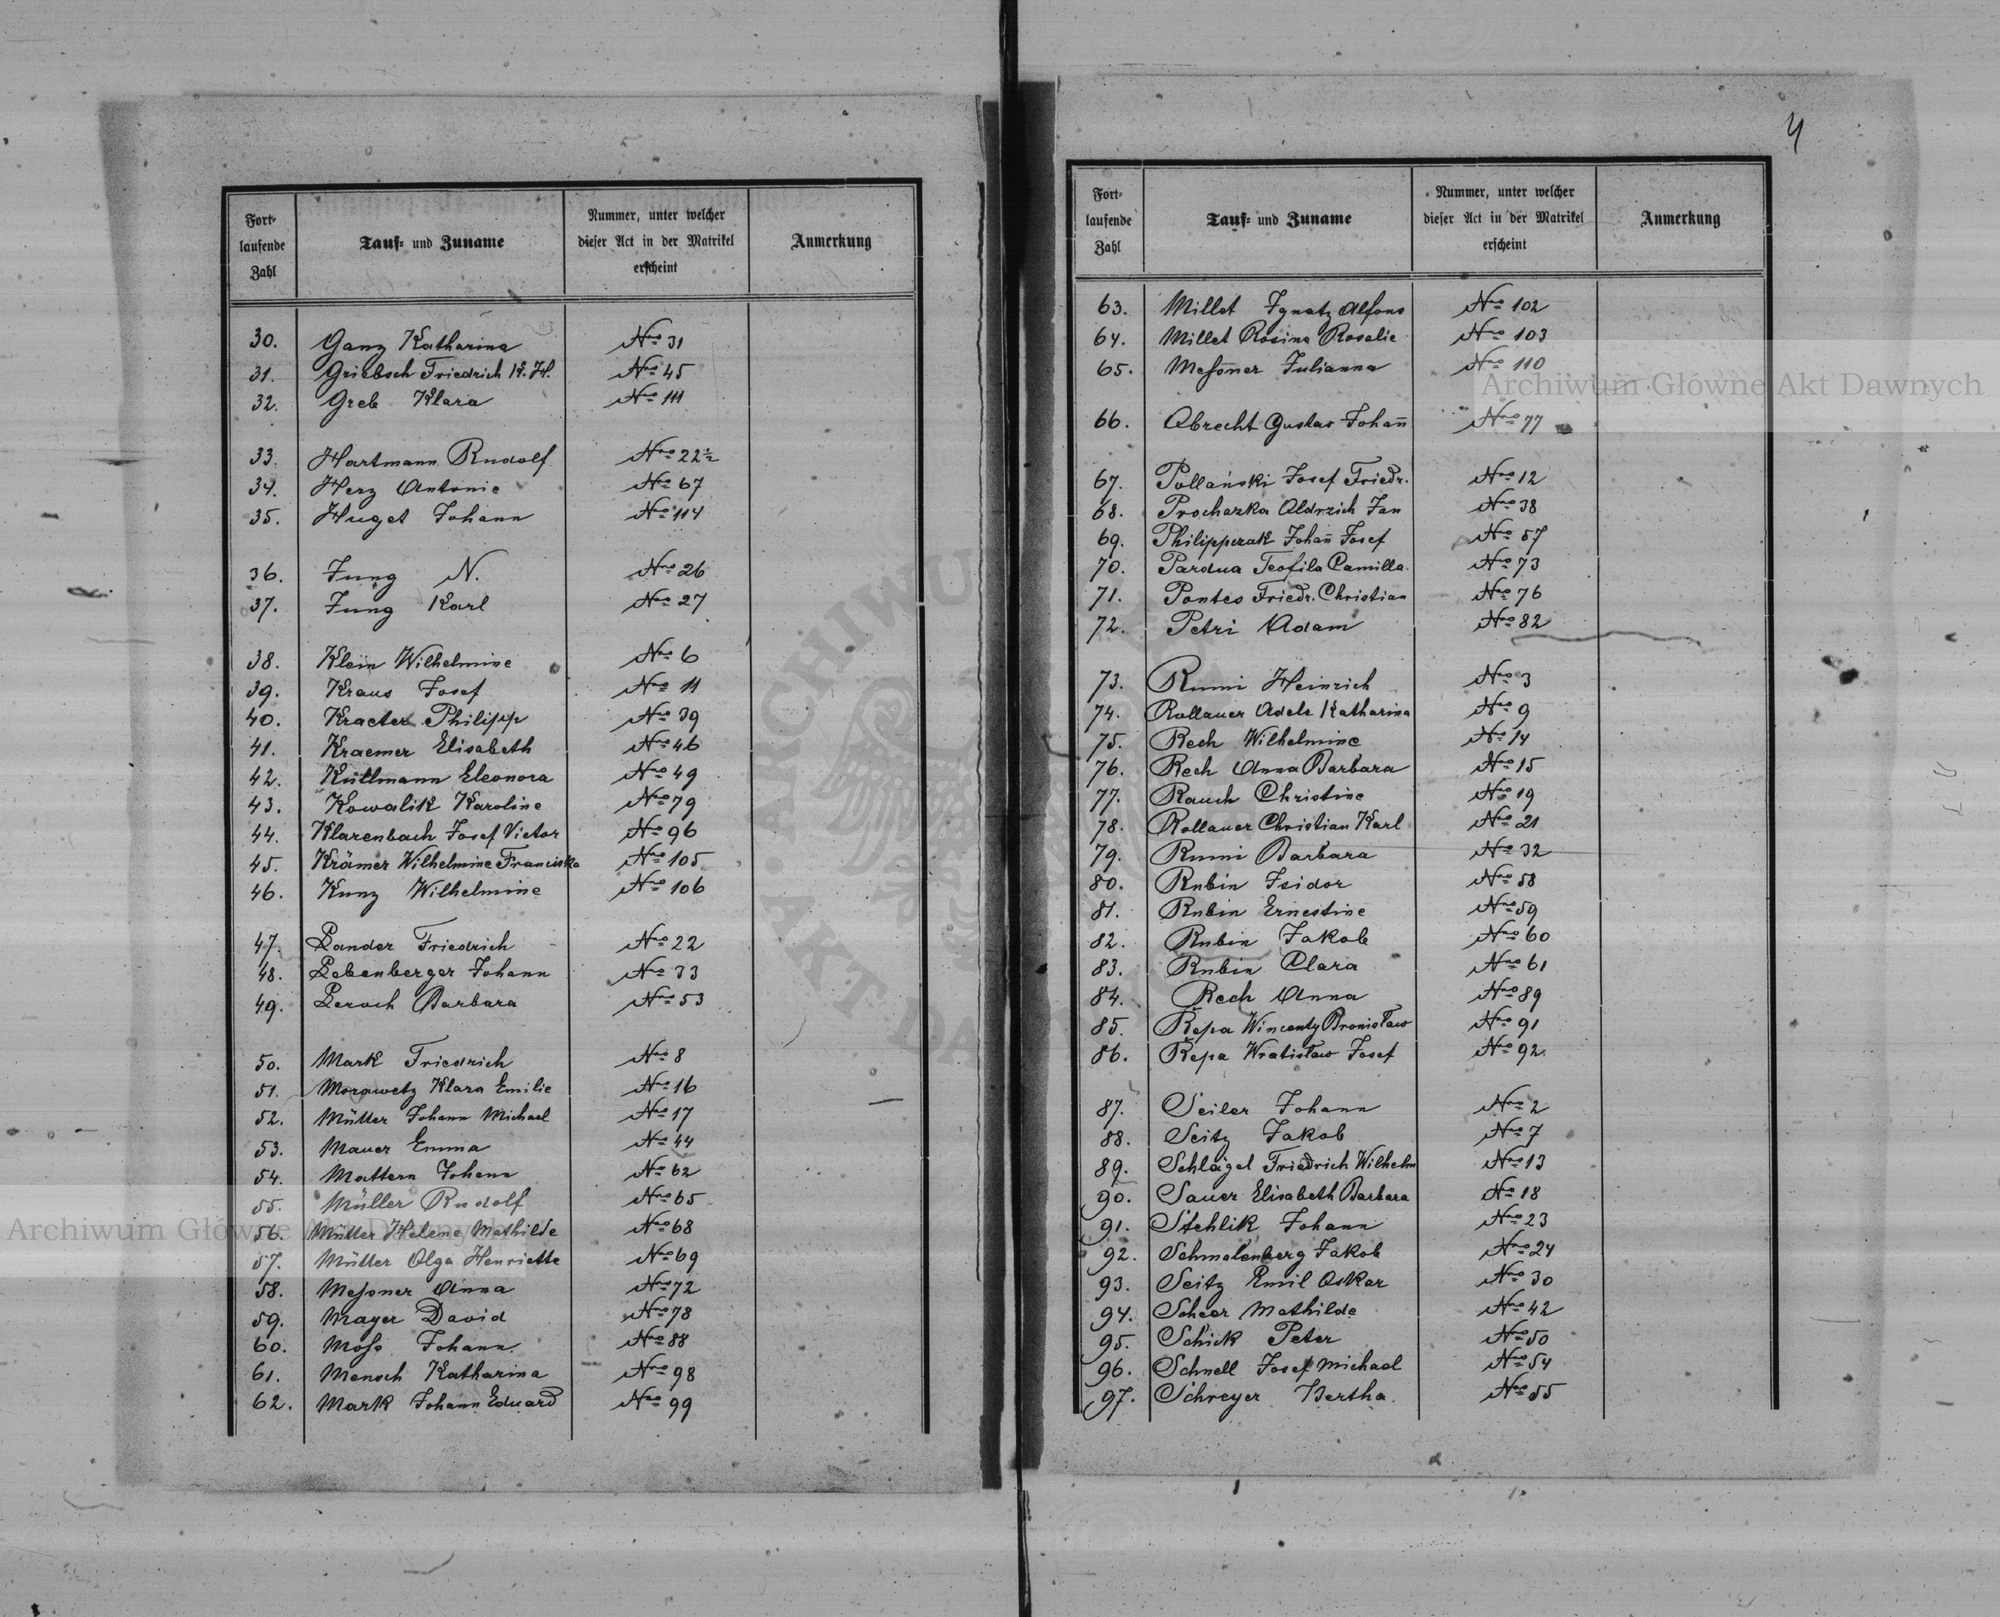 Fort-
laufende
Zahl
Tauf- und Zuname
Nummer, unter welcher
dieser Act in der Matrikel
erscheint
Anmerkung
30. Ganz Katharina Nro 31
31. Griebsch Friedrich K. H. Nro 45
32. Greb Klara Nro 111
33. Hartmann Rudolf Nro 22½
34. Herz Antonie Nro 67
35. Huget Johann Nro 114
36. Jung N. Nro 26
37. Jung Karl Nro 27
38. Klein Wilhelmine Nro 6
39. Kraus Josef Nro 11
40. Kracter Philipp Nro 39
41. Kraemer Elisabeth Nro 46
42. Kullmann Eleonora Nro 49
43. Kowalik Karoline Nro 79
44. Klarenbach Josef Victor Nro 96
45. Krämer Wilhelmine Franciska Nro 105
46. Kunz Wilhelmine Nro 106
47. Lander Friedrich Nro 22
48. Lebenberger Johann Nro 33
49. Leroch Barbara Nro 53
50. Mark Friedrich Nro 8
51. Morawetz Klara Emilie Nro 16
52. Müller Johann Michael Nro 17
53. Mauer Emma Nro 44
54. Mattern Johann Nro 62
55. Müller Rudolf Nro 65
56. Müller Helene Mathilde Nro 68
57. Müller Olga Henriette Nro 69
58. Meßner Anna Nro 72
59. Mayer David Nro 78
60. Moß Johann Nro 88
61. Mensch Katharina Nro 98
62. Mark Johann Eduard Nro 99
4
Fort-
laufende
Zahl
Tauf- und Zuname
Nummer, unter welcher
dieser Act in der Matrikel
erscheint
Anmerkung
63. Millet Ignatz Alfons Nro 102
64. Millet Rosina Rosalie Nro 103
65. Meßner Julianna Nro 110
66. Obrecht Gustav Johañ Nro 77
67. Pollański Josef Friedr. Nro 12
68. Prochazka Aldrzich Jan Nro 38
69. Philippczak Johañ Josef Nro 57
70. Pardua Teofila Camilla Nro 73
71. Pontes Friedr. Christian Nro 76
72. Petri Adam Nro 82
73. Rumi Heinrich Nro 3
74. Rollauer Adele Katharina Nro 9
75. Rech Wilhelmine Nro 14
76. Rech Anna Barbara Nro 15
77. Rauch Christine Nro 19
78. Rollauer Christian Karl Nro 21
79. Rumi Barbara Nro 32
80. Rubin Isidor Nro 58
81. Rubin Ernestine Nro 59
82. Rubin Jakob Nro 60
83. Rubin Clara Nro 61
84. Rech Anna Nro 89
85. Řepa Wincenty Bronisław Nro 91
86. Řepa Wratisław Josef Nro 92
87. Seiler Johann Nro 2
88. Seitz Jakob Nro 7
89. Schlägel Friedrich Wilhelm Nro 13
90. Sauer Elisabeth Barbara No 18
91. Stehlik Johann Nro 23
92. Schmalenberg Jakob Nro 24
93. Seitz Emil Oskar Nro 30
94. Scheer Mathilde Nro 42
95. Schick Peter Nro 50
96. Schnell Josef Michael Nro 54
97. Schreyer Bertha Nro 55
Archiwum Główne Akt Dawnych
Archiwum Główne Akt Dawnych